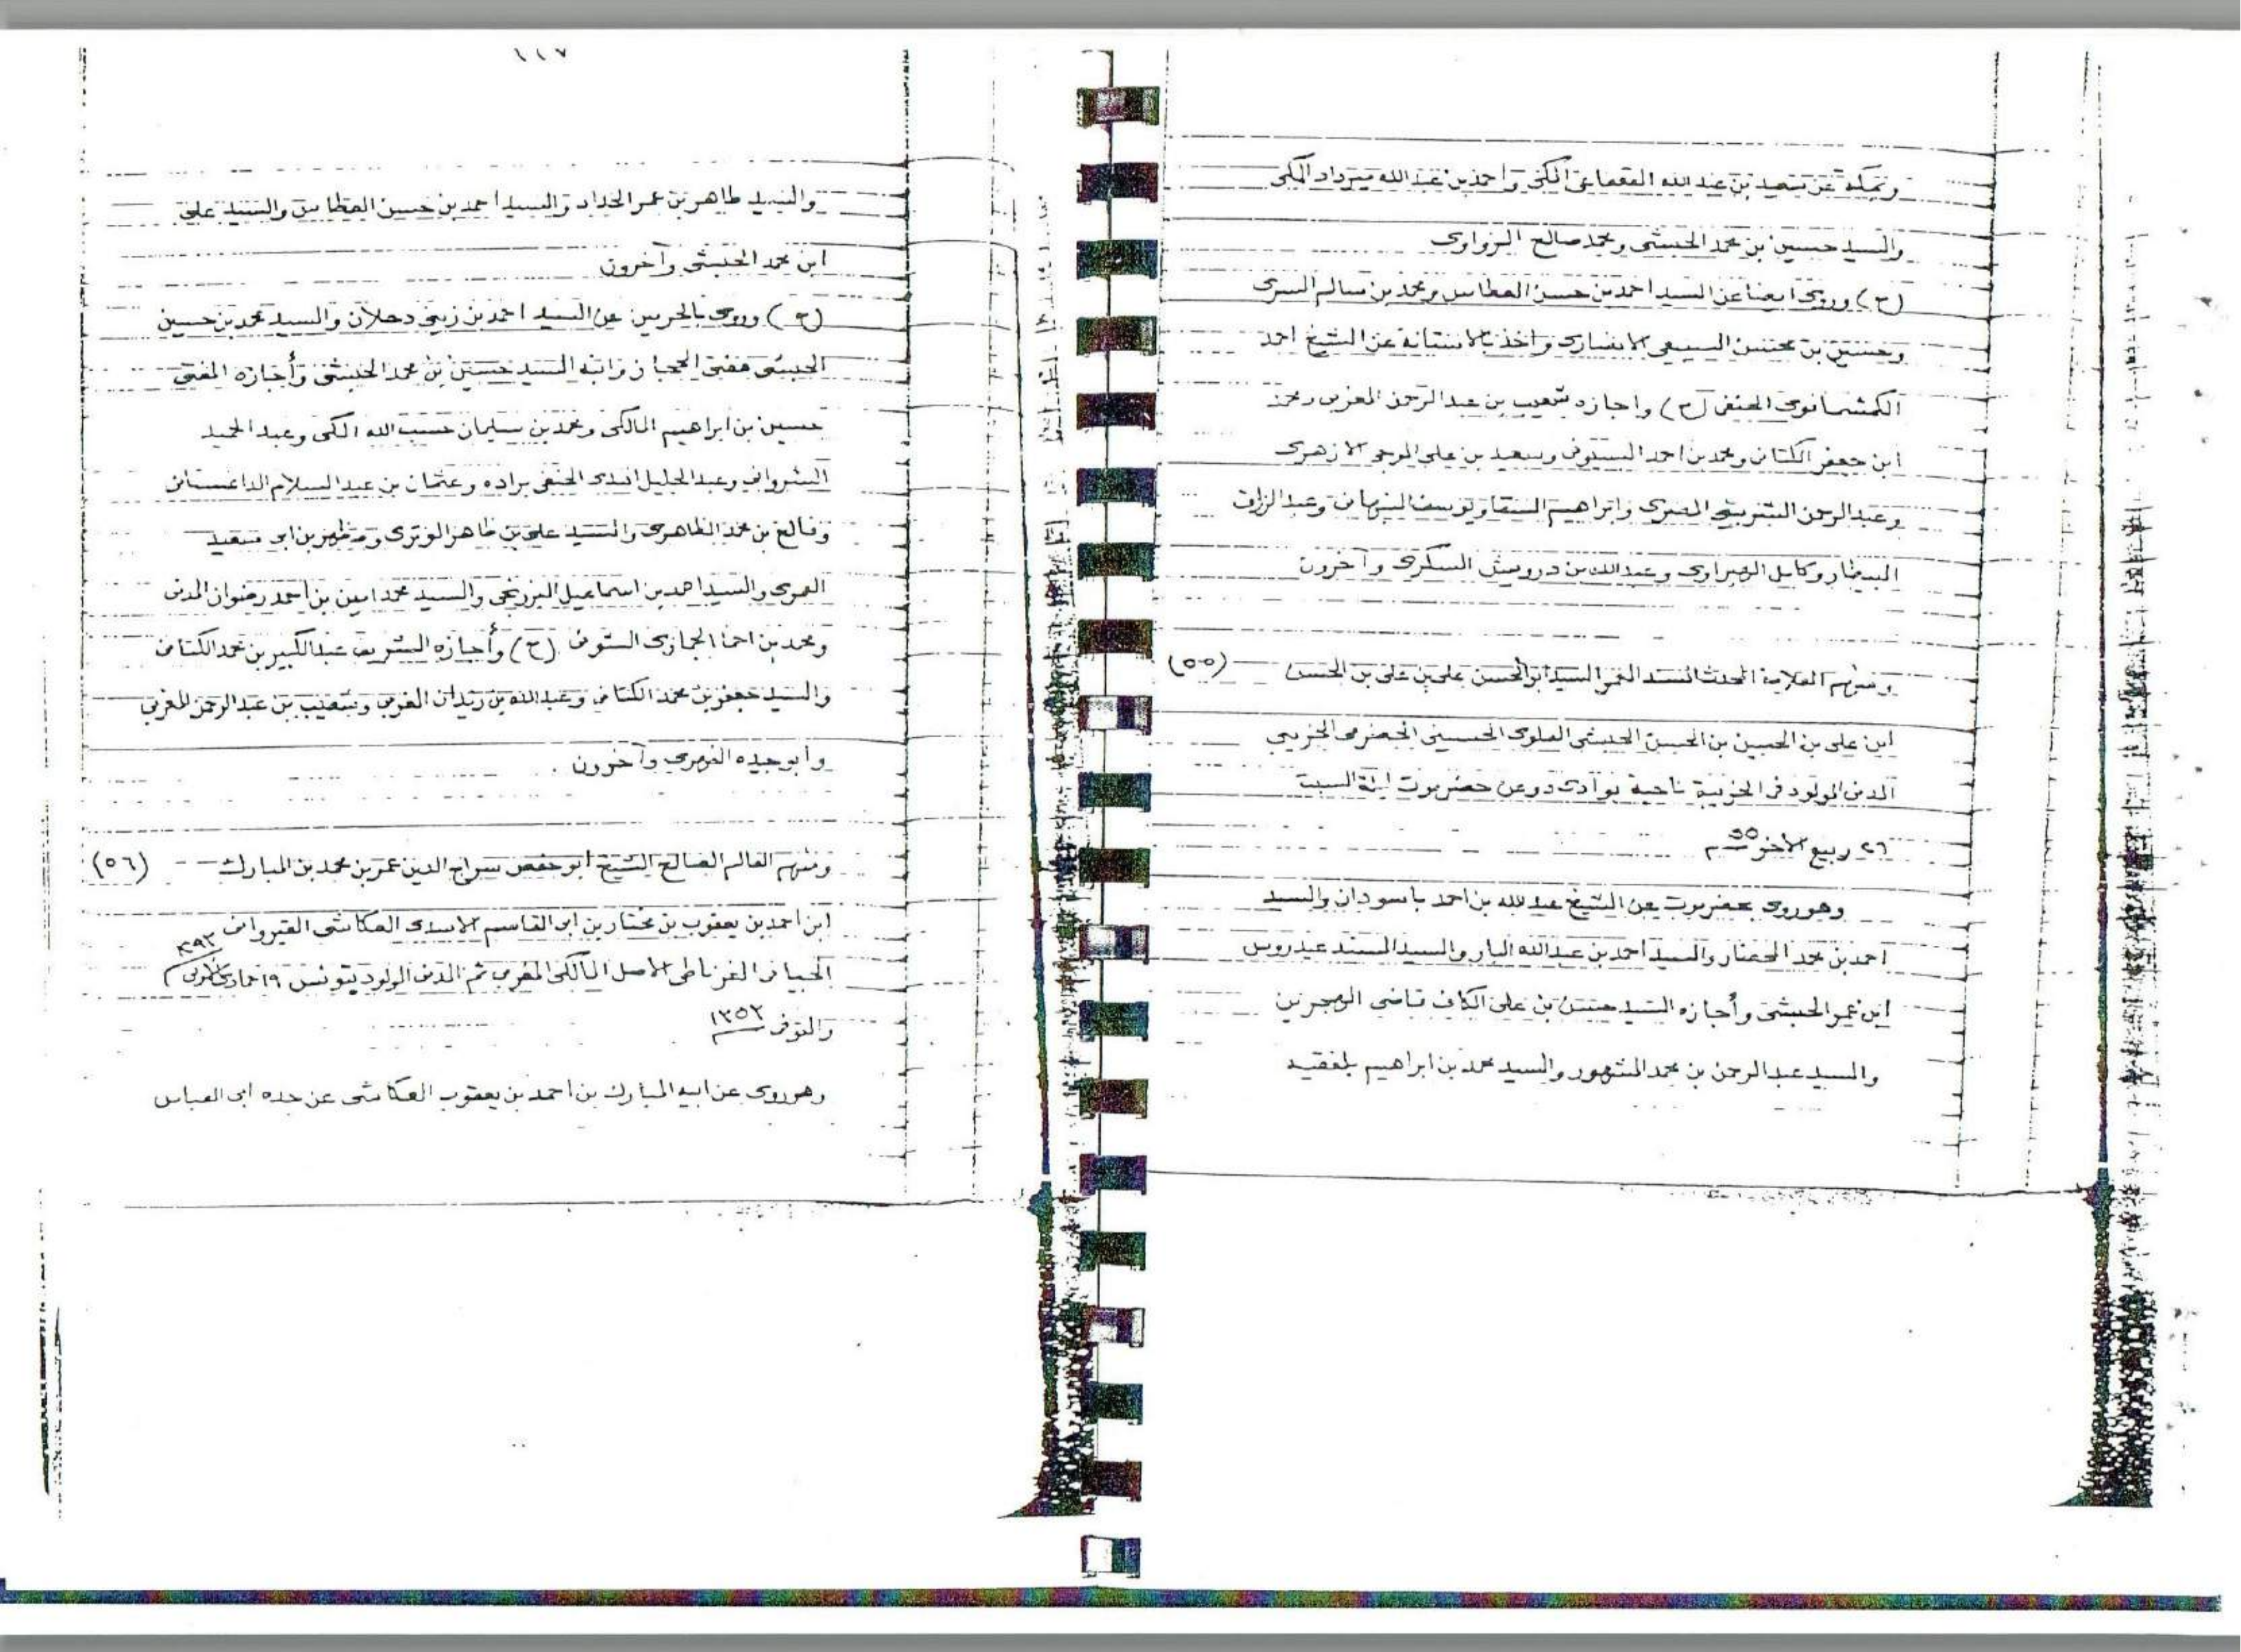 وبمكة عن سعيد بن عبد الله القعقاعي المكي واحمد بن عبد الله ميرداد المكي
والسيد حسين بن محمد الحبشي ومحمد صالح الزواوي
(ح) وروى ايضا عن السيد احمد بن حسن العطاس ومحمد بن سالم السرى
وحسين بن محسن السبيعي الانصارى واخذ بالاستانة عن الشيخ احمد
الكمشخانوى الحنفى (ح) واجازه شعيب بن عبد الرحمن المغربى ومحمد
ابن جعفر الكتانى ومحمد بن احمد السنوفى وسعيد بن على الموجى الازهرى
وعبد الرحمن الشربينى المصرى وابراهيم السقا ويوسف النبهانى وعبد الرزاق
البيطار وكامل الهبراوى وعبد الله بن درويش السكرى وآخرون
ومنهم العلامة المحدث المسند المعمر السيد ابو الحسن على بن على بن الحسن (٥٥)
ابن على بن الحسين بن الحسن الحبشى العلوى الحسينى الحضرمى الخريبى
المدنى المولود فى الخريبة ناحية بوادى دوعن حضرموت ليلة السبت
٢٦ ربيع الآخر
وهو روى بحضرموت عن الشيخ عبد الله بن احمد باسودان والسيد
احمد بن محمد المحضار والسيد احمد بن عبد الله البار والسيد المسند عيدروس
ابن عمر الحبشى وأجازه السيد حسن بن على الكاف قاضى الهجرين
والسيد عبد الرحمن بن محمد المشهور والسيد محمد بن ابراهيم بلفقيه
١١٧
والسيد طاهر بن عمر الحداد والسيد احمد بن حسن العطاس والسيد على
ابن محمد الحبشى وآخرون
(ح) وروى بالحرمين عن السيد احمد بن زينى دحلان والسيد محمد بن حسين
الحبشى مفتى الحجاز وابنه السيد حسين بن محمد الحبشى وأجازه المفتى
حسين بن ابراهيم المالكى ومحمد بن سليمان حسب الله المكى وعبد الحميد
الشروانى وعبد الجليل افندى الحنفى براده وعثمان بن عبد السلام الداغستانى
وفالح بن محمد الظاهرى والسيد على بن ظاهر الوترى ومظهر بن ابى سعيد
العمرى والسيد احمد بن اسماعيل البرزنجى والسيد محمد امين بن احمد رضوان المدنى
ومحمد بن احمد الحجازى السنوفى (ح) وأجازه الشريف عبد الكبير بن محمد الكتانى
والسيد جعفر بن محمد الكتانى وعبد الله بن زيدان المغربى وشعيب بن عبد الرحمن المغربى
وابو جيده وآخرون .
ومنهم العالم الصالح الشيخ ابو حفص سراج الدين عمر بن محمد بن المبارك (٥٦)
ابن احمد بن يعقوب بن مختار بن ابى القاسم الاسدى العكاشى القيروانى
الجيانى الغرناطى الاصل المالكى المغربى ثم المدنى المولود بتونس ١٩ جمادى الاولى
والمتوفى ١٣٥٢
وهو روى عن ابيه المبارك بن احمد بن يعقوب العكاشى عن جده ابى العباس